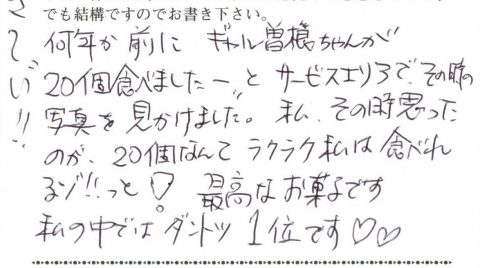 でも結構ですのでお書き下さい。
何年か前に ギャル曽根ちゃんが
20個食べましたーと サービスエリアで、その時の
写真を見かけました。私、その時思った
のが、20個なんて ラクラク私は食べれ
るゾ!!っと! 最高なお菓子です
私の中では ダントツ 1位です♡♡